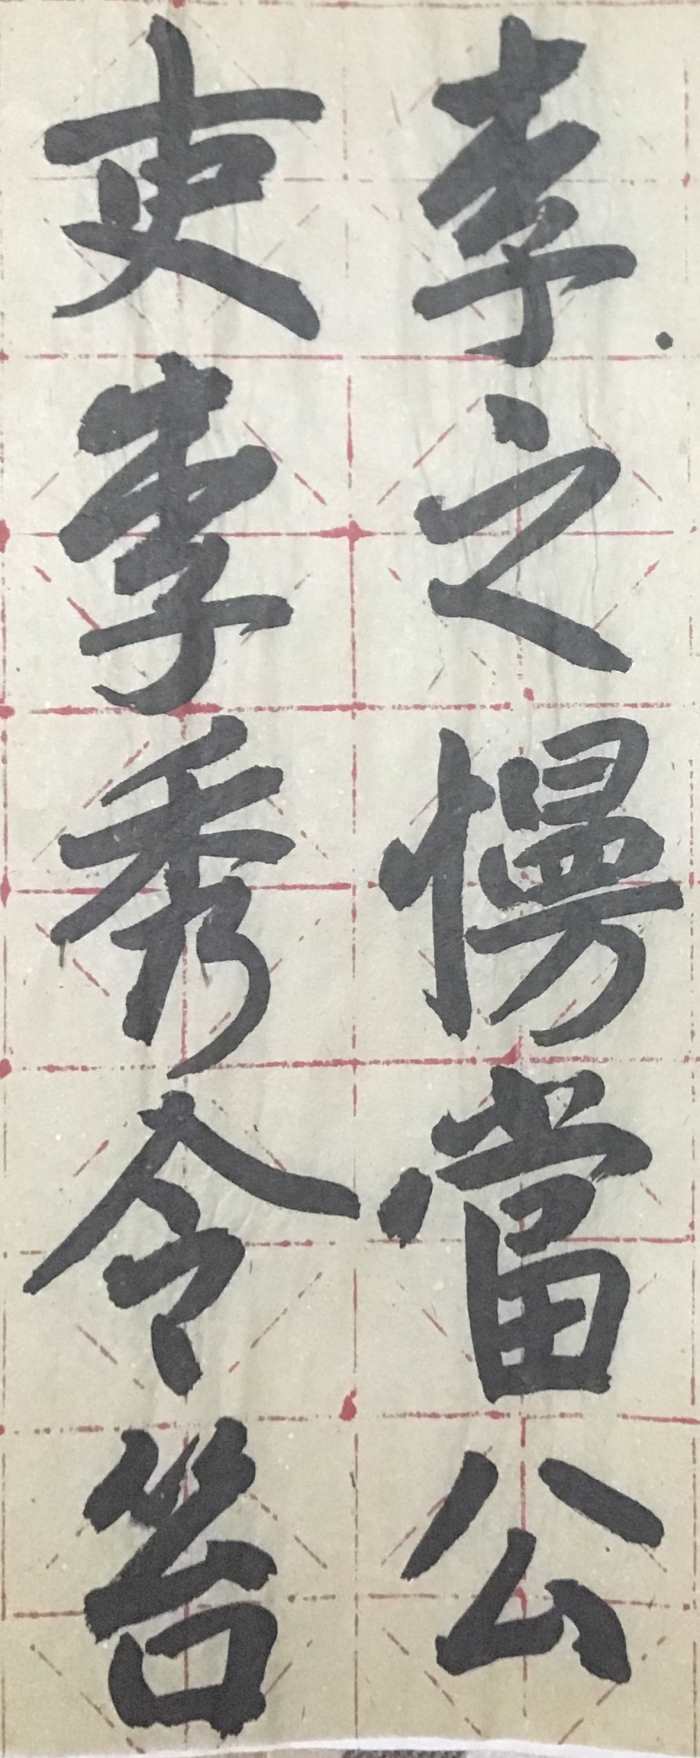 李之慢當公
吏李秀令笞